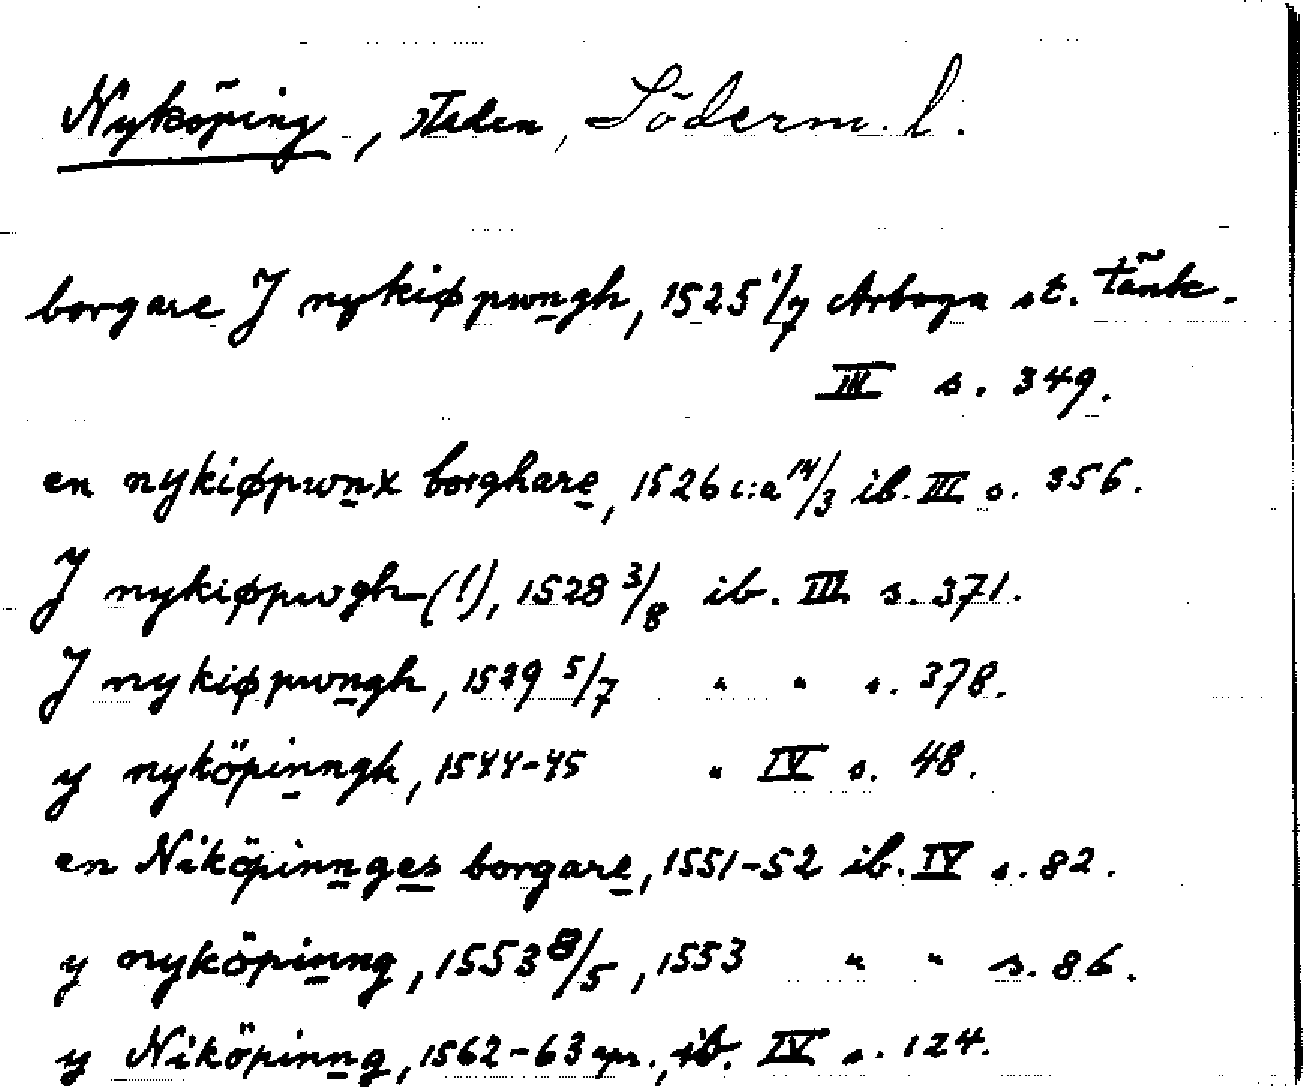 Nyköping, staden, Söderm. l.
borgare J nykiøpwngh, 1525 1/7 Arboga st. tänk.
III s. 349.
en nykiøpwnx borghare, 1526 c:a 14/3 ib. III s. 356.
J nykiøpwgh (!), 1528 3/8 ib. III s. 371.
J nykiøpwngh, 1529 5/7 " " s. 378.
y nyköpinngh, 1544-45 " IV s. 48.
en Niköpinnges borgare, 1551-52 ib. IV s. 82.
y nyköpinng, 1553 8/5, 1553 " " s. 86.
y Niköpinng, 1562-63 ib. IV s. 124.